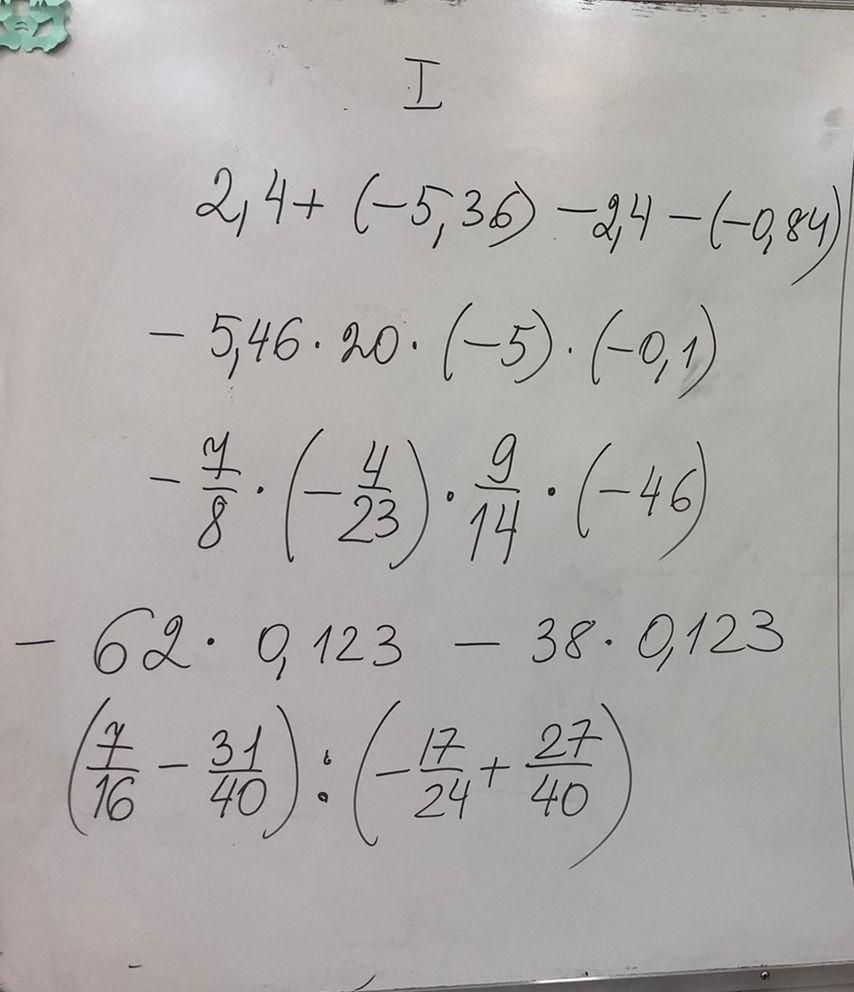 I
2,4 + (−5,36) − 2,4 − (−0,84)
− 5,46 · 20 · (−5) · (−0,1)
− 7/8 · (− 4/23) · 9/14 · (−46)
− 62 · 0,123 − 38 · 0,123
(7/16 − 31/40) : (− 17/24 + 27/40)